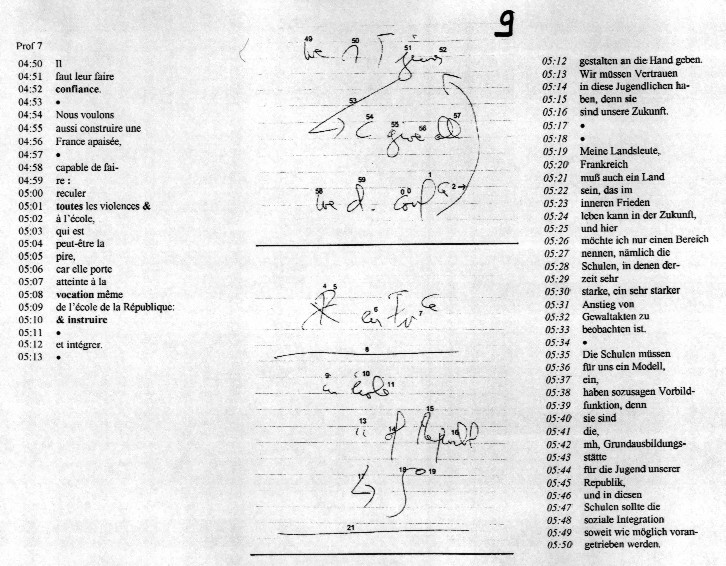 9
Prof 7
04:50 Il
04:51 faut leur faire
04:52 confiance.
04:53 •
04:54 Nous voulons
04:55 aussi construire une
04:56 France apaisée,
04:57 •
04:58 capable de fai-
04:59 re :
05:00 reculer
05:01 toutes les violences &
05:02 à l'école,
05:03 qui est
05:04 peut-être la
05:05 pire,
05:06 car elle porte
05:07 atteinte à la
05:08 vocation même
05:09 de l'école de la République:
05:10 & instruire
05:11 •
05:12 et intégrer.
05:13 •
49 50 51 52
we
53
54 55 56 57
58 59 0 0 1 2
we d. conf
4 5 6 7
8
9 10 11
13 14 15 16
of Republ
17 18 19
21
05:12 gestalten an die Hand geben.
05:13 Wir müssen Vertrauen
05:14 in diese Jugendlichen ha-
05:15 ben, denn sie
05:16 sind unsere Zukunft.
05:17 •
05:18 •
05:19 Meine Landsleute,
05:20 Frankreich
05:21 muß auch ein Land
05:22 sein, das im
05:23 inneren Frieden
05:24 leben kann in der Zukunft,
05:25 und hier
05:26 möchte ich nur einen Bereich
05:27 nennen, nämlich die
05:28 Schulen, in denen der-
05:29 zeit sehr
05:30 starke, ein sehr starker
05:31 Anstieg von
05:32 Gewaltakten zu
05:33 beobachten ist.
05:34 •
05:35 Die Schulen müssen
05:36 für uns ein Modell,
05:37 ein,
05:38 haben sozusagen Vorbild-
05:39 funktion, denn
05:40 sie sind
05:41 die,
05:42 mh, Grundausbildungs-
05:43 stätte
05:44 für die Jugend unserer
05:45 Republik,
05:46 und in diesen
05:47 Schulen sollte die
05:48 soziale Integration
05:49 soweit wie möglich voran-
05:50 getrieben werden.